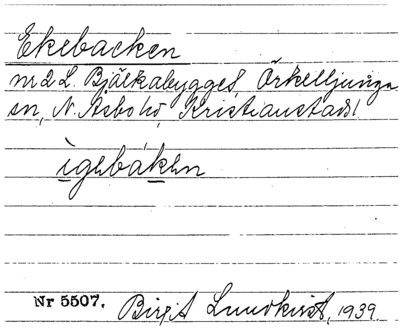 Ekebacken
nr 2 L. Bjälkabygget, Örkelljunga
sn, N. Åsbo hd, Kristianstads l.
ìgebáken
Nr 5507. Birgit Lundkvist, 1939.